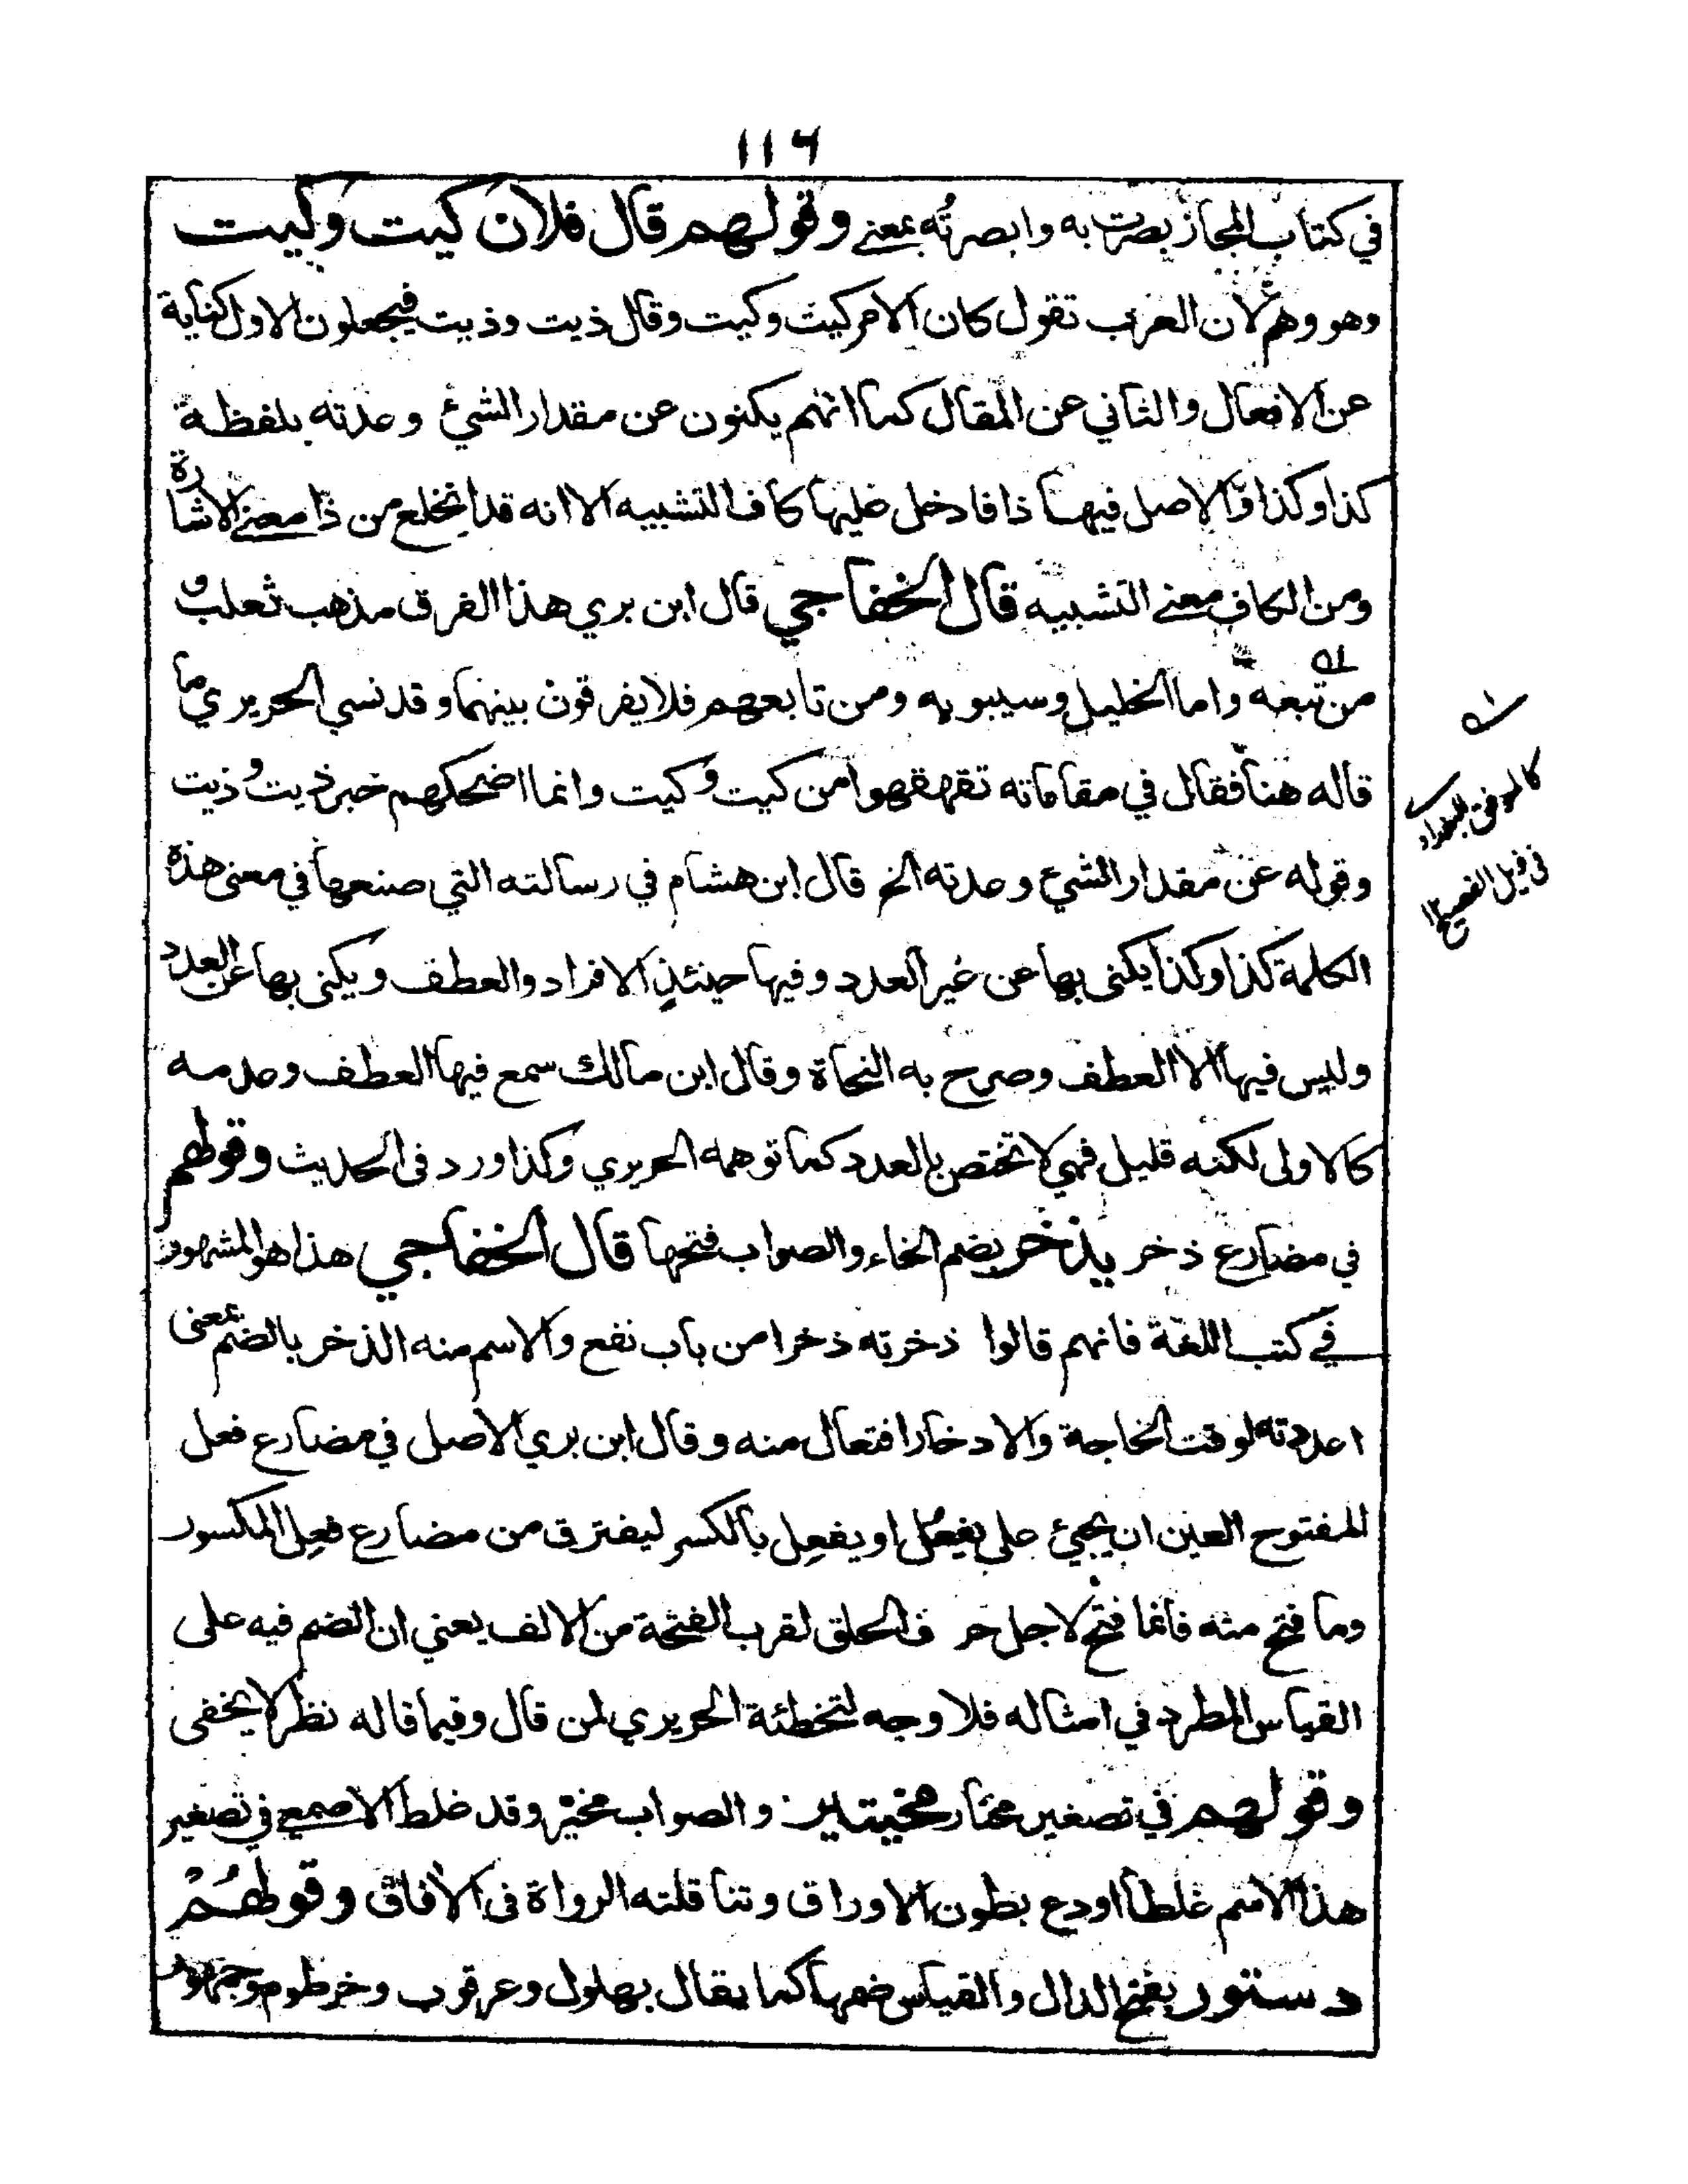 ١١٦
في كتاب المجاز بصرت به وابصرتُه بمعنے وقولهم قال فلان كيت وكيت
وهو وهم لان العرب تقول كان الامر كيت وكيت وقال ذيت وذيت فيجعلون الاول كناية
عن الافعال والثاني عن المقال كما انهم يكنون عن مقدار الشيئ وعدته بلفظة
كذا وكذا والاصل فيها ذا فادخل عليها كاف التشبيه الا انه قد انخلع من ذا معنے الاشارة
ومن الكاف معنے التشبيه قال الخفاجي قال ابن بري هذا الفرق مذهب ثعلب و
من تبعه واما الخليل وسيبويه ومن تابعهم فلا يفرقون بينهما وقد نسي الحريري ما
قاله هنا فقال في مقاماته تقهقهوا من كيت وكيت وانما اضحكهم خبر ذيت وذيت
وقوله عن مقدار الشيئ وعدته الخ قال ابن هشام في رسالته التي صنعها في معنى هذه
الكلمة كذا وكذا يكنى بها عن غير العدد وفيها حينئذٍ الافراد والعطف ويكنى بها عن العدد
وليس فيها الا العطف وصرح به النحاة وقال ابن مالك سمع فيها العطف وعدمه
كالاولى لكنه قليل فهي لا تختص بالعدد كما توهمه الحريري وكذا ورد فى الحديث وقولهم
في مضارع ذخر يذخر بضم الخاء والصواب فتحها قال الخفاجي هذا هو المشهور
في كتب اللغة فانهم قالوا ذخرته ذخرا من باب نفع والاسم منه الذخر بالضم بمعنى
اعددته لوقت الحاجة والادخار افتعال منه وقال ابن بري الاصل في مضارع فعل
المفتوح العين ان يجيئ على يفعُل او يفعِل بالكسر ليفترق من مضارع فعِل المكسور
وما فتح منه فانما فتح لاجل حرف الحلق لقرب الفتحة من الالف يعني ان الضم فيه على
القياس المطرد في امثاله فلا وجه لتخطئة الحريري لمن قال وفيما قاله نظر لا يخفى
وقولهم في تصغير مختار مخيتاير والصواب مخيّر وقد غلط الاصمعے في تصغير
هذا الاسم غلطا اودع بطون الاوراق وتناقلته الرواة فى الافاق وقولهُمْ
دستور بفتح الدال والقياس ضمها كما يقال بهلول وعرقوب وخرطوم وجمهور
كالموفق البغدادے
فى ذيل الفصيح ١٢